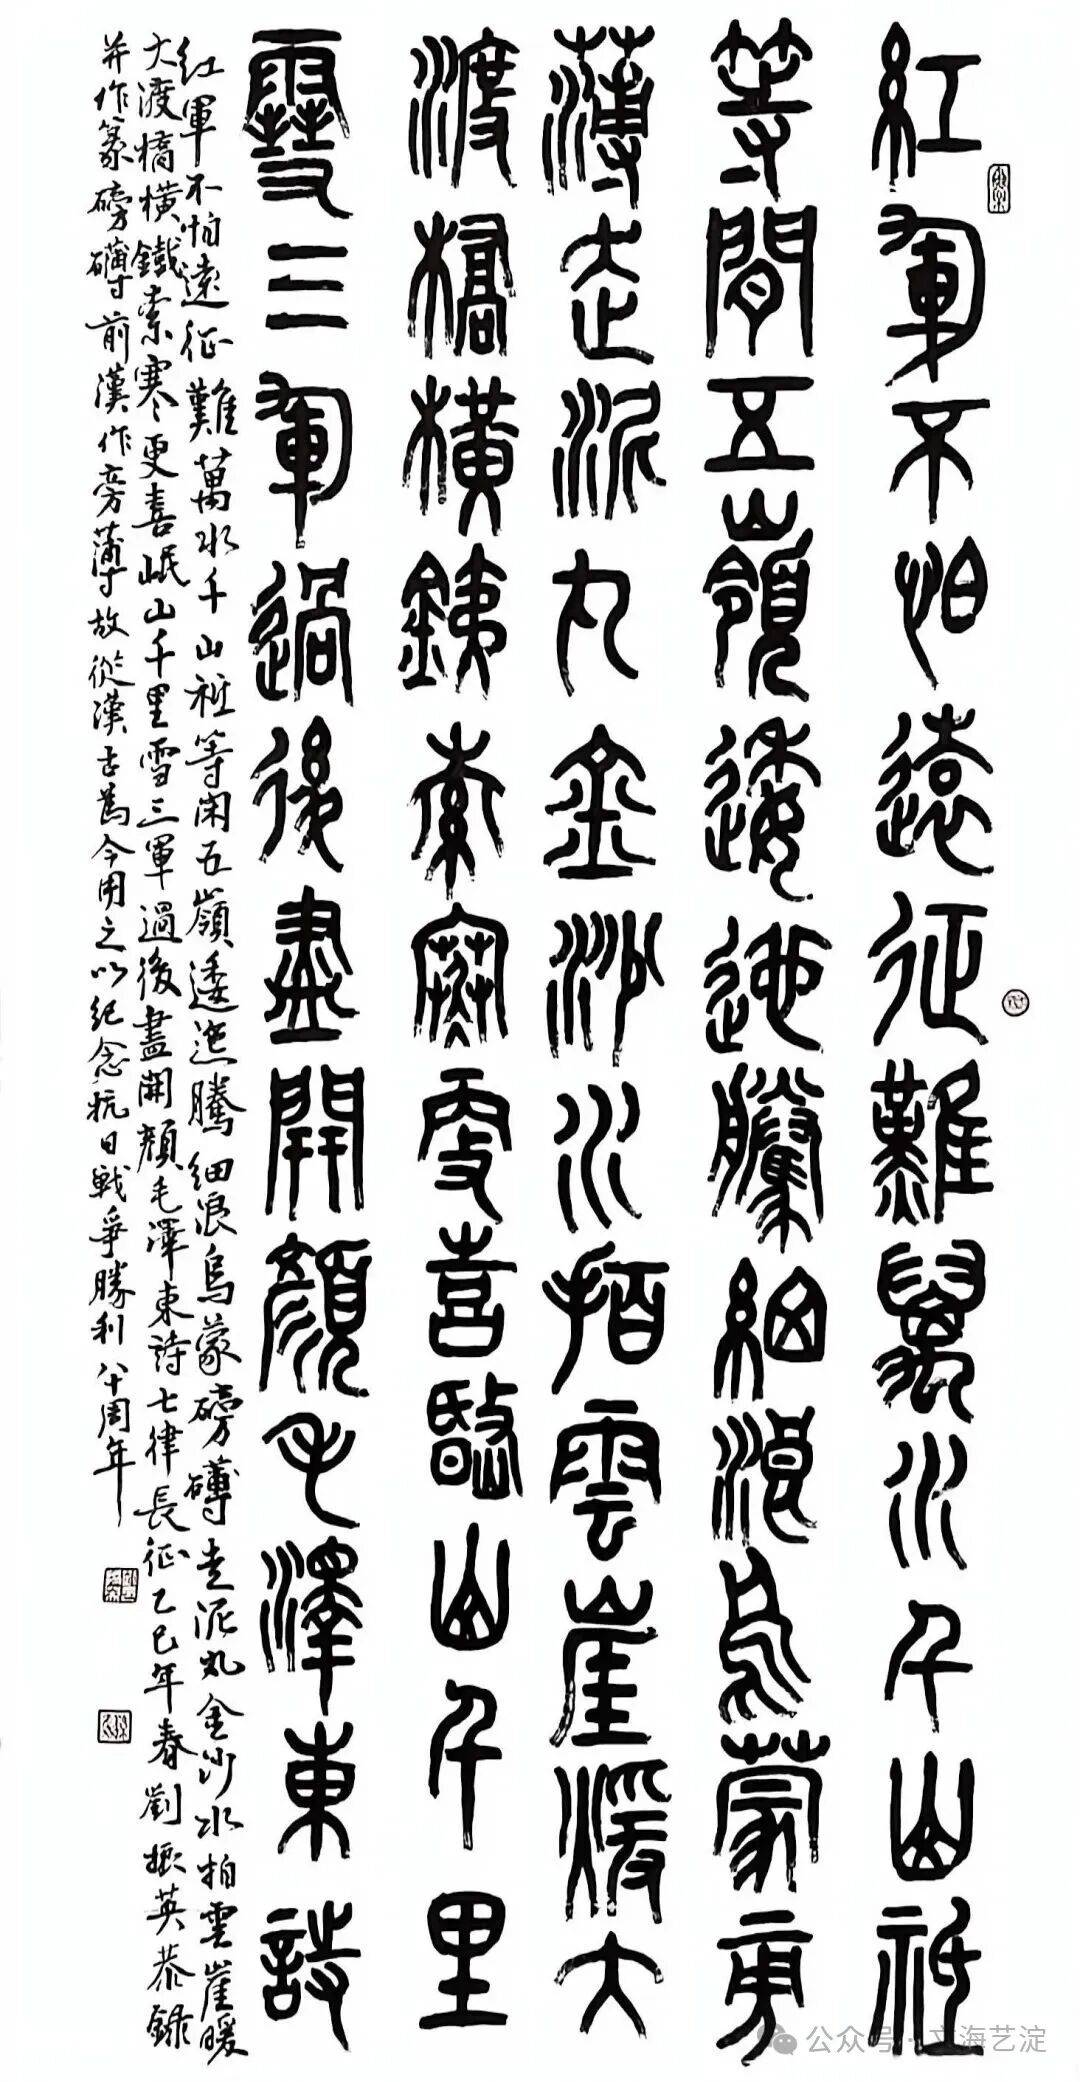 紅軍不怕遠征難萬水千山祇
等閒五嶺逶迤騰細浪烏蒙旁
薄走泥丸金沙水拍雲崖暖大
渡橋橫鐵索寒更喜岷山千里
雪三軍過後盡開顏毛澤東詩
紅軍不怕遠征難萬水千山祇等閑五嶺逶迤騰細浪烏蒙磅礴走泥丸金沙水拍雲崖暖
大渡橋橫鐵索寒更喜岷山千里雪三軍過後盡開顏毛澤東詩七律長征乙巳年春劉振英恭錄
并作篆磅礴前漢作旁薄故從漢古為今用之以紀念抗日戰爭勝利八十周年
公众号·文海艺淀